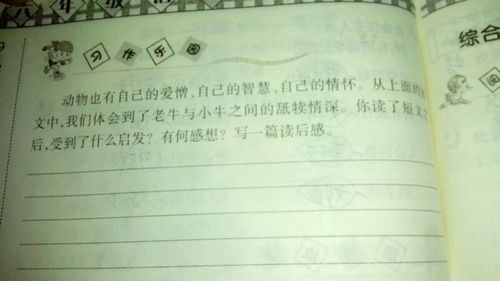 六年级
习作乐园
综合
动物也有自己的爱憎、自己的智慧、自己的情怀。从上面的
文中,我们体会到了老牛与小牛之间的舐犊情深。你读了短文之
后,受到了什么启发?有何感想?写一篇读后感。